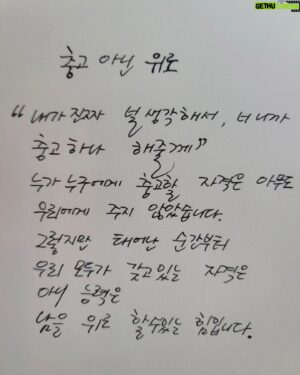 GETHU
충고 아닌 위로
“내가 진짜 널 생각해서, 너니까
충고 하나 해줄게”
누가 누구에게 충고할 자격은 아무도
우리에게 주지 않았습니다.
그렇지만 태어난 순간부터
우리 모두가 갖고있는 자격은
아니 능력은
남을 위로 할수있는 힘입니다.